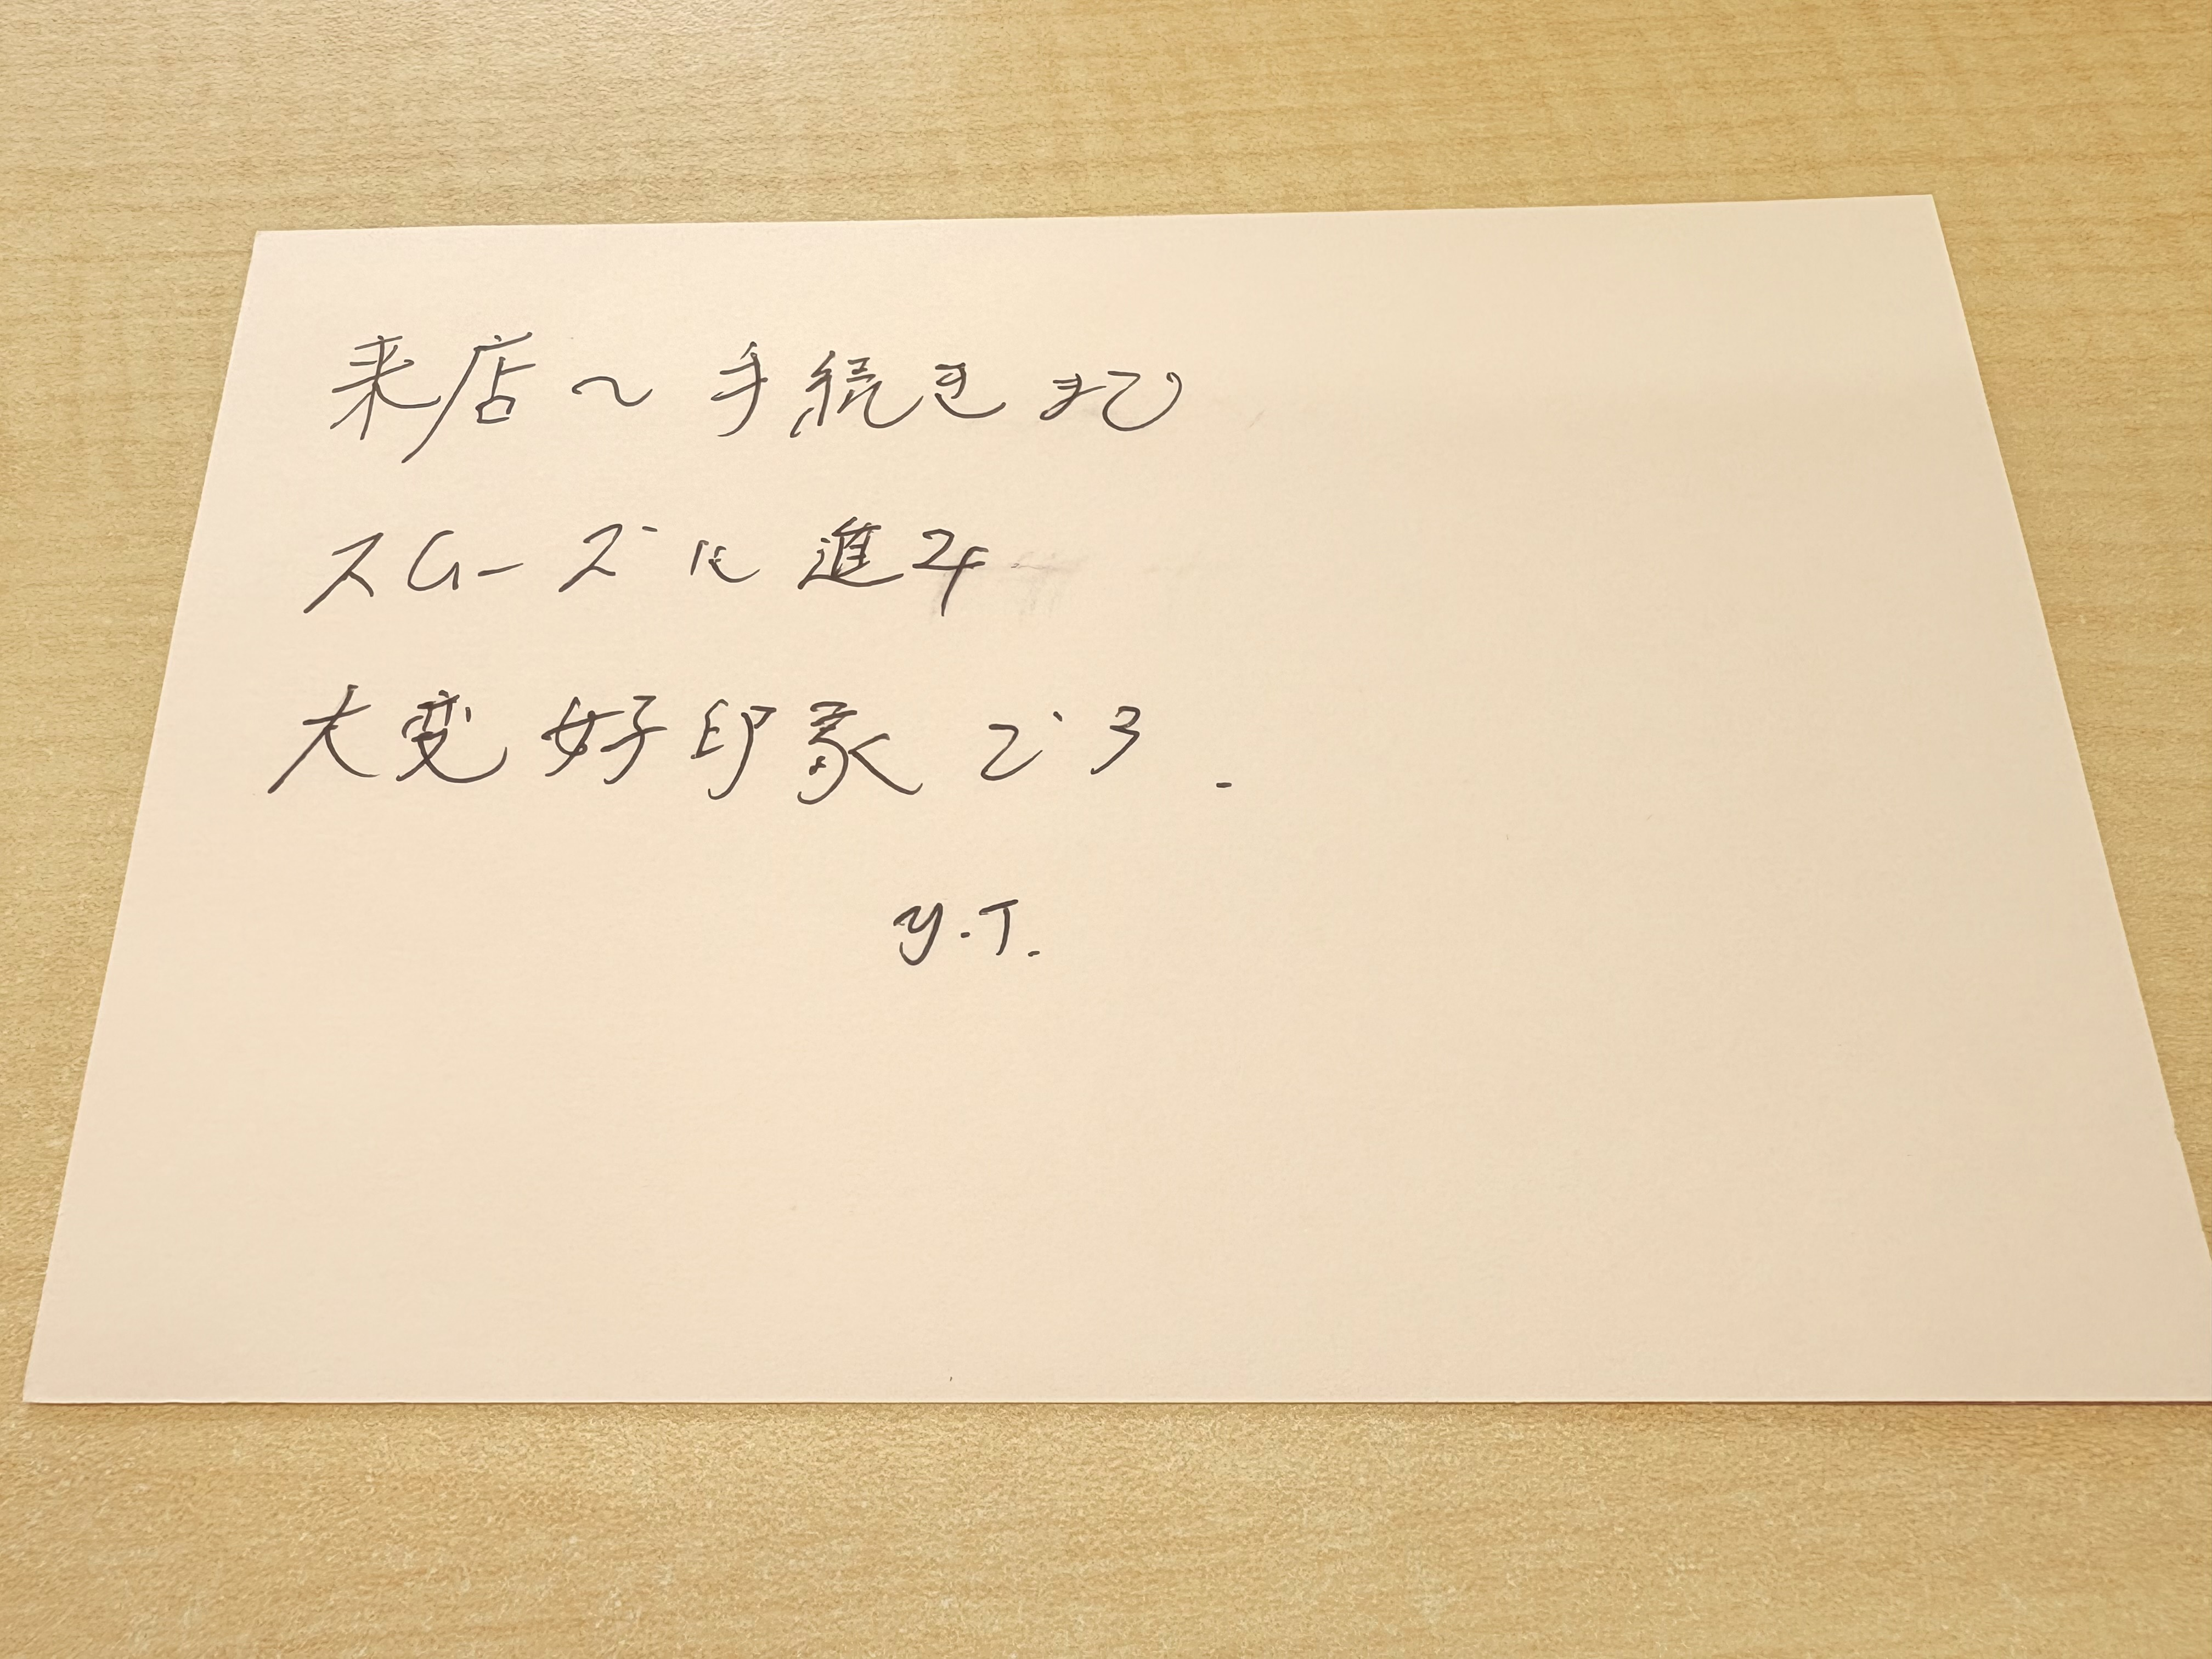 来店～手続きまで
スムーズに進み
大変好印象です.
y.T.